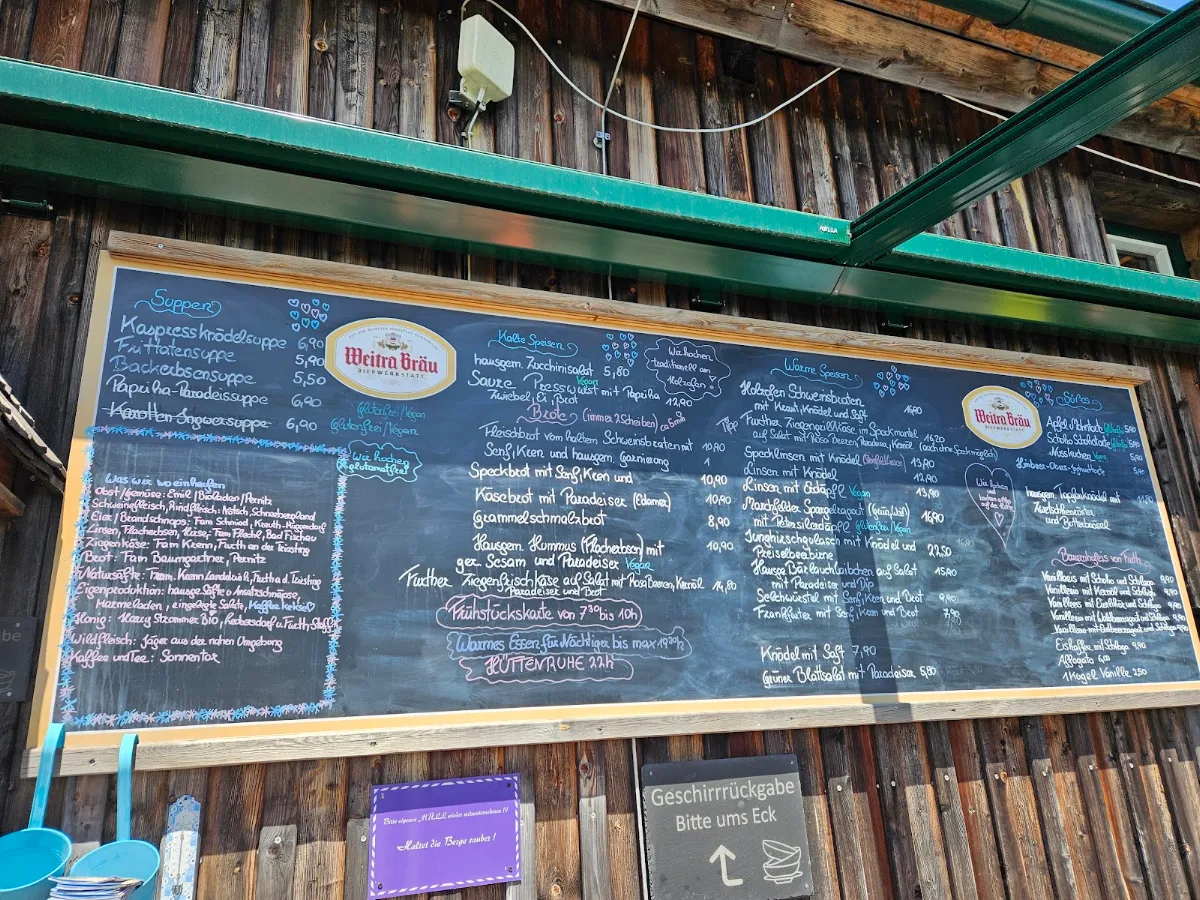 Suppen
Kaspressknödelsuppe 6,90
Frittatensuppe 5,90
Backerbsensuppe 5,50
Paprika-Paradeissuppe 6,90 Glutenfrei/Vegan
Karotten Ingwersuppe 6,90 Glutenfrei/Vegan
Wir kochen
glutamatfrei
Was wir wo einkaufen
Obst/Gemüse: Emil/Bioladen/Pernitz
Schweinefleisch, Rindfleisch: Hötsch, Schneebergland
Eier/Brandschnaps: Fam Schmied,
Linsen, Flacherbsen, Käse: Fam Flechl, Bad Fischau
Ziegenkäse: Fam Krenn, Furth an der Triesting
Brot: Fam Baumgartner, Pernitz
Natursäfte: Fam. Krenn Furth a.d. Triesting
Eigenproduktion: hausge. Säfte & Ansatzschnäpse,
Marmeladen, eingelegte Salate, Kaffee kekse
Honig: Harry Strommer BIO,
Wildfleisch: Jäger aus der nahen Umgebung
Kaffee und Tee: Sonnentor
Weitra Bräu
BIERWERKSTATT
Kalte Speisen
hausgem. Zucchinisalat 5,80
Vegan
Saure Presswurst mit Paprika
Zwiebel, Ei, Brot 12,90
Wir kochen
traditionell am
Holzofen
Brote (immer 2 Scheiben)
Fleischbrot vom kalten Schweinsbraten mit 10,90
Senf, Kren und hausgem. Garnierung
Speckbrot mit Senf, Kren und 10,90
Käsebrot mit Paradeiser (Edamer) 10,90
Grammelschmalzbrot 8,90
Hausgem. Hummus (Flacherbsen) mit 10,90
ger. Sesam und Paradeiser Vegan
Further Ziegenfrischkäse auf Salat mit Moosbeeren, Kernöl 14,80
Paradeiser und Brot
Frühstückskarte von 7 30 bis 10h
Warmes Essen für Nächtiger bis max 19 30 h
HÜTTENRUHE 22h
Warme Speisen
Holzofen Schweinsbraten
mit Kraut, Knödel und Saft 16,90
Tipp Further Ziegenfrischkäse im Speckmantel 16,20
auf Salat mit Moosbeeren, Paradeiser, Kernöl
Specklinsen mit Knödel 13,90
Linsen mit Knödel 12,90
Linsen mit Erdäpfl Vegan 13,90
Marchfelder Spargelragout (grün/weiß) 16,90
mit Petersilerdäpfl Glutenfrei/Vegan
Junghirschgulasch mit Knödel und 22,50
Preiselbeerbirne
Hausge. Bärlauchlaibchen auf Salat 15,90
mit Paradeiser und Dip
Selchwürstel mit Senf, Kren und Brot 9,90
Frankfurter mit Senf, Kren und Brot 7,90
Knödel mit Saft 7,90
Grüner Blattsalat mit Paradeiser 5,80
Weitra Bräu
Süßes
Apfel Mohntorte
Schoko
Nusskuchen Vegan
Himbeer-Ober-Joghurttorte
hausgem. Topfenknödel mit
Zwetschkenröster
und Butterbrösel
Bauernhofeis von Furth
Vanilleeis mit Schoko und Schlagobers 9,90
Vanilleeis mit Kernöl und Schlagobers 9,90
Vanilleeis mit Eierlikör und Schlagobers 9,90
Eiskaffee mit Schlagobers 9,90
Affogato 6,00
1 Kugel Vanille 2,50
Bitte eigenen MÜLL wieder mitunternehmen !!
Haltet die Berge sauber !
Geschirrrückgabe
Bitte ums Eck